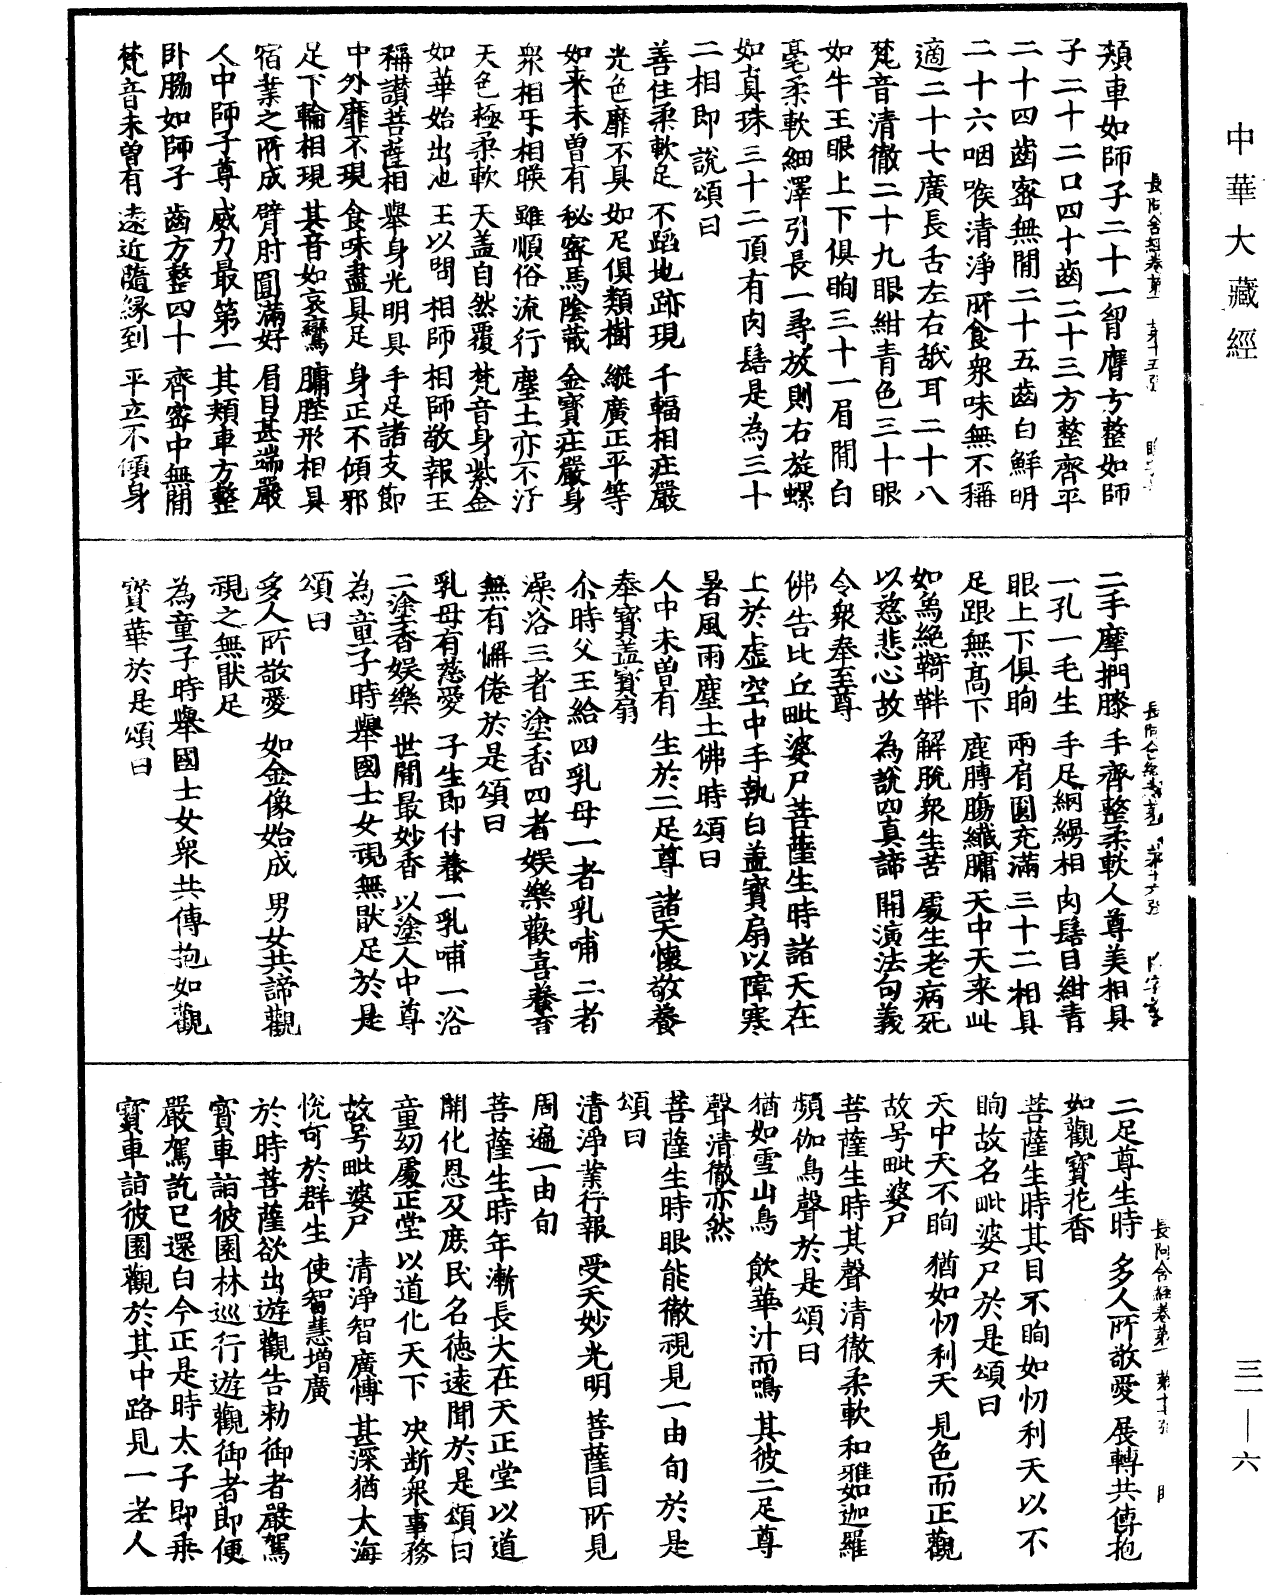 中華大藏經
頰車如師子二十一智膺方整如師
子二十二口四十齒二十三方整齊平
二十四齒密無閒二十五齒白鮮明
二十六咽喉清淨所食衆味無不稱
適二十七廣長舌左右舐耳二十八
梵音清徹二十九眼紺青色三十眼
如牛王眼上下俱眴三十一眉閒白
毫柔軟細澤引長一尋放則右旋螺
如真珠三十二頂有肉髻是為三十
二相即說頌曰
善住柔軟足 不蹈地跡現 千輻相莊嚴
光色靡不具 如尼俱類樹 縱廣正平等
如来未曽有 秘密馬陰藏 金寶莊嚴身
衆相㸦相暎 雖順俗流行 塵土亦不汙
天色極柔軟 天盖自然覆 梵音身紫金
如華始出池 王以問相師 相師敬報王
稱讃菩薩相 舉身光明具 手足諸支節
中外靡不現 食味盡具足 身正不傾邪
足下輪相現 其音如哀鸞 𦟛䏶形相具
宿業之所成 臂肘圓滿好 眉目甚端嚴
人中師子尊 威力最第一 其頰車方整
卧脇如師子 齒方整四十 齊密中無閒
梵音未曽有 遠近隨緣到 平立不傾身
長阿含經卷第一 第十五張
二手摩捫膝 手齊整柔軟 人尊美相具
一孔一毛生 手足網縵相 肉髻目紺青
眼上下俱眴 兩肩圓充滿 三十二相具
足跟無高下 鹿膊膓纖𦟛 天中天来此
如象絶鞿靽 解脫衆生苦 處生老病死
以慈悲心故 為說四真諦 開演法句義
令衆奉至尊
佛告比丘毗婆尸菩薩生時諸天在
上於虛空中手執白盖寶扇以障寒
暑風雨塵土佛時頌曰
人中未曽有 生於二足尊 諸天懷敬養
奉寶盖寶扇
尒時父王給四乳母一者乳哺二者
澡浴三者塗香四者娛樂歡喜養育
無有懈倦於是頌曰
乳母有慈愛 子生即付養 一乳哺一浴
二塗香娛樂 世閒最妙香 以塗人中尊
為童子時舉國士女視無猒足於是
頌曰
多人所敬愛 如金像始成 男女共諦觀
視之無猒足
為童子時舉國士女衆共傳抱如觀
寶華於是頌曰
長阿含經卷第一 第十六張
二足尊生時 多人所敬愛 展轉共傳抱
如觀寶花香
菩薩生時其目不眴如忉利天以不
眴故名毗婆尸於是頌曰
天中天不眴 猶如忉利天 見色而正觀
故号毗婆尸
菩薩生時其聲清徹柔軟和雅如迦羅
頻伽鳥聲於是頌曰
猶如雪山鳥 飲華汁而鳴 其彼二足尊
聲清徹亦然
菩薩生時眼能徹視見一由旬於是
頌曰
清淨業行報 受天妙光明 菩薩目所見
周遍一由旬
菩薩生時年漸長大在天正堂以道
開化恩及庶民名徳遠聞於是頌曰
童幼處正堂 以道化天下 決断衆事務
故号毗婆尸 清淨智廣愽 甚深猶大海
恱可於群生 使智慧增廣
於時菩薩欲出遊觀告勑御者嚴駕
寳車詣彼園林巡行遊觀御者即便
嚴駕訖已還白今正是時太子即乗
寳車詣彼園觀於其中路見一老人
長阿含經卷第一
三一—六